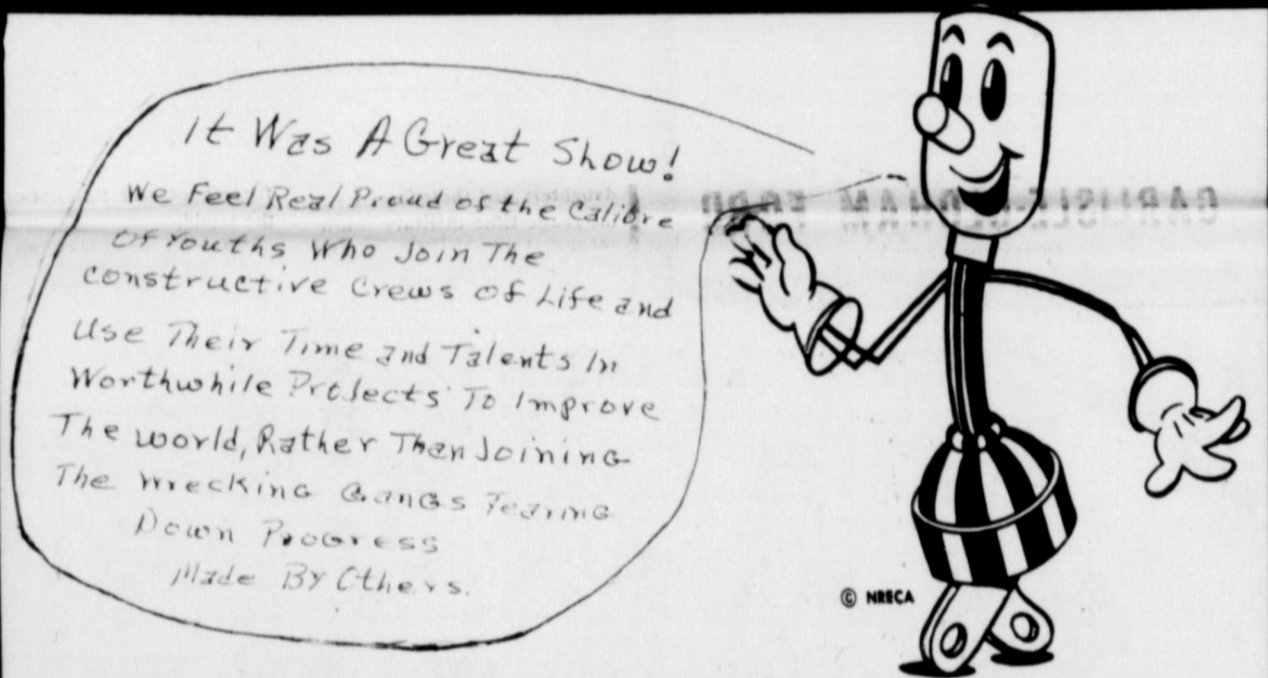 It Was A Great Show!
We Feel Real Proud of the Calibre
Of Youths Who Join The
Constructive Crews of Life and
Use Their Time and Talents In
Worthwhile Projects To Improve
The World, Rather Than Joining
The Wrecking Gangs Tearing
Down Progress
Made By Others.
© NRECA